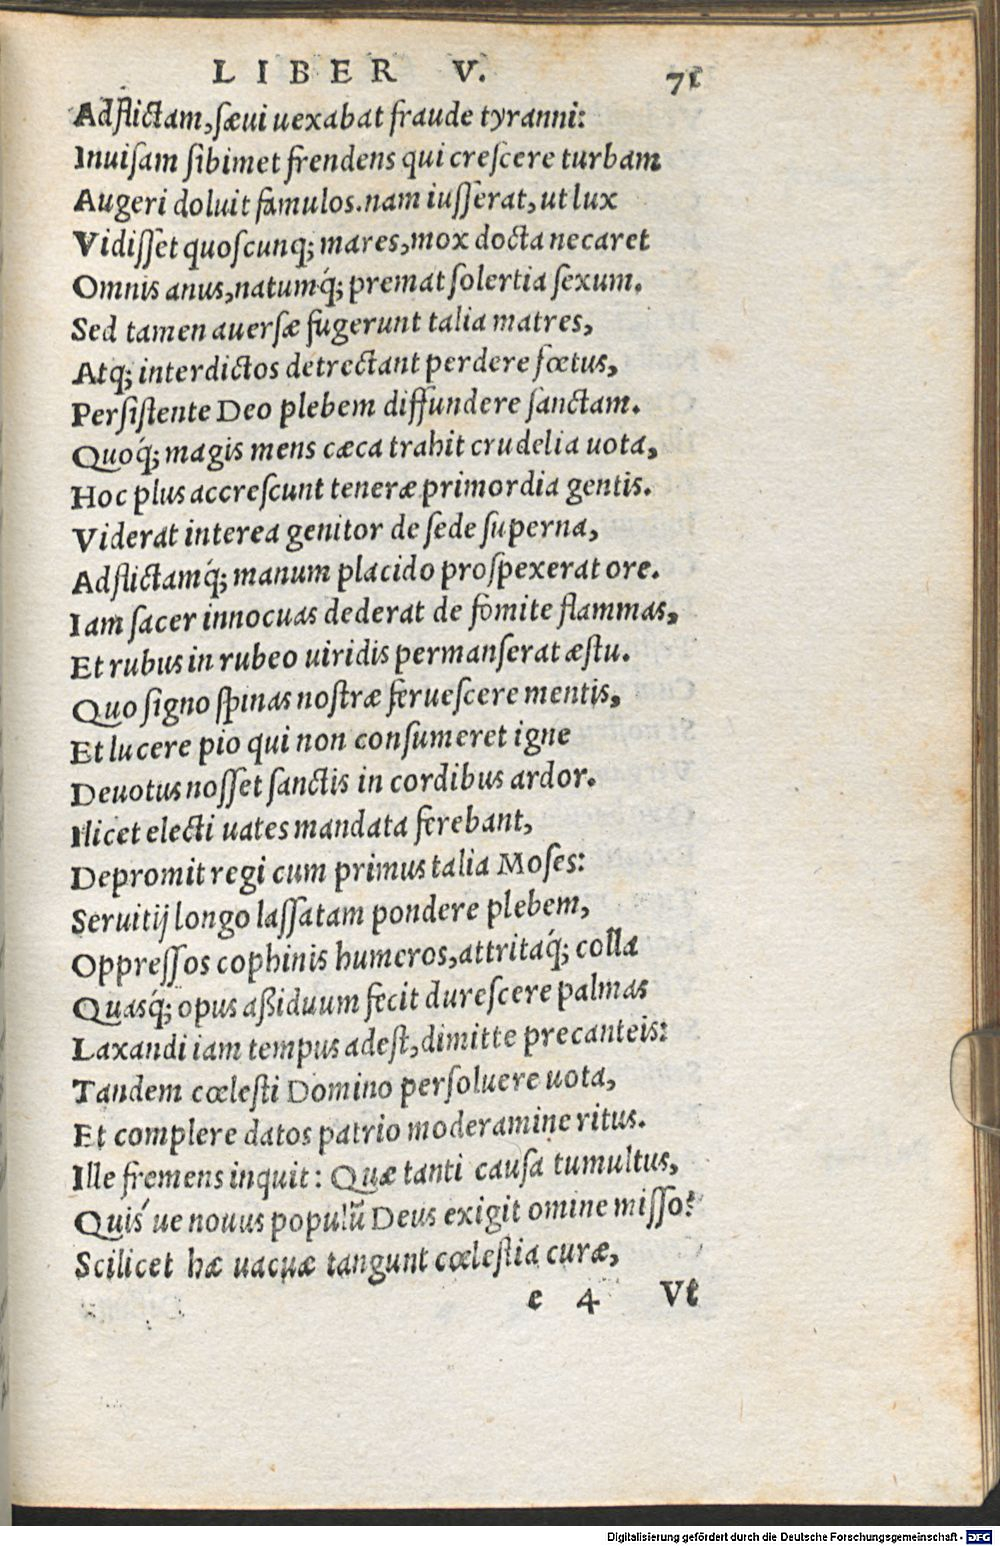 LIBER V. 71
Adflictam, sæui uexabat fraude tyranni:
Inuisam sibimet frendens qui crescere turbam
Augeri doluit famulos. nam iusserat, ut lux
Vidisset quoscunq; mares, mox docta necaret
Omnis anus, natumq́; premat solertia sexum.
Sed tamen auersæ fugerunt talia matres,
Atq; interdictos detrectant perdere fœtus,
Persistente Deo plebem diffundere sanctam.
Quoq́; magis mens cæca trahit crudelia uota,
Hoc plus accrescunt teneræ primordia gentis.
Viderat interea genitor de sede superna,
Adflictamq́; manum placido prospexerat ore.
Iam sacer innocuas dederat de fomite flammas,
Et rubus in rubeo uiridis permanserat æstu.
Quo signo spinas nostræ feruescere mentis,
Et lucere pio qui non consumeret igne
Deuotus nosset sanctis in cordibus ardor.
Ilicet electi uates mandata ferebant,
Depromit regi cum primus talia Moses:
Seruitij longo lassatam pondere plebem,
Oppressos cophinis humeros, attritaq́; colla
Quasq́; opus aßiduum fecit durescere palmas
Laxandi iam tempus adest, dimitte precanteis:
Tandem cœlesti Domino persoluere uota,
Et complere datos patrio moderamine ritus.
Ille fremens inquit: Quæ tanti causa tumultus,
Quiś ue nouus populũ Deus exigit omine misso?
Scilicet hæ uacuæ tangunt cœlestia curæ,
e 4 Vt
Digitalisierung gefördert durch die Deutsche Forschungsgemeinschaft - DFG